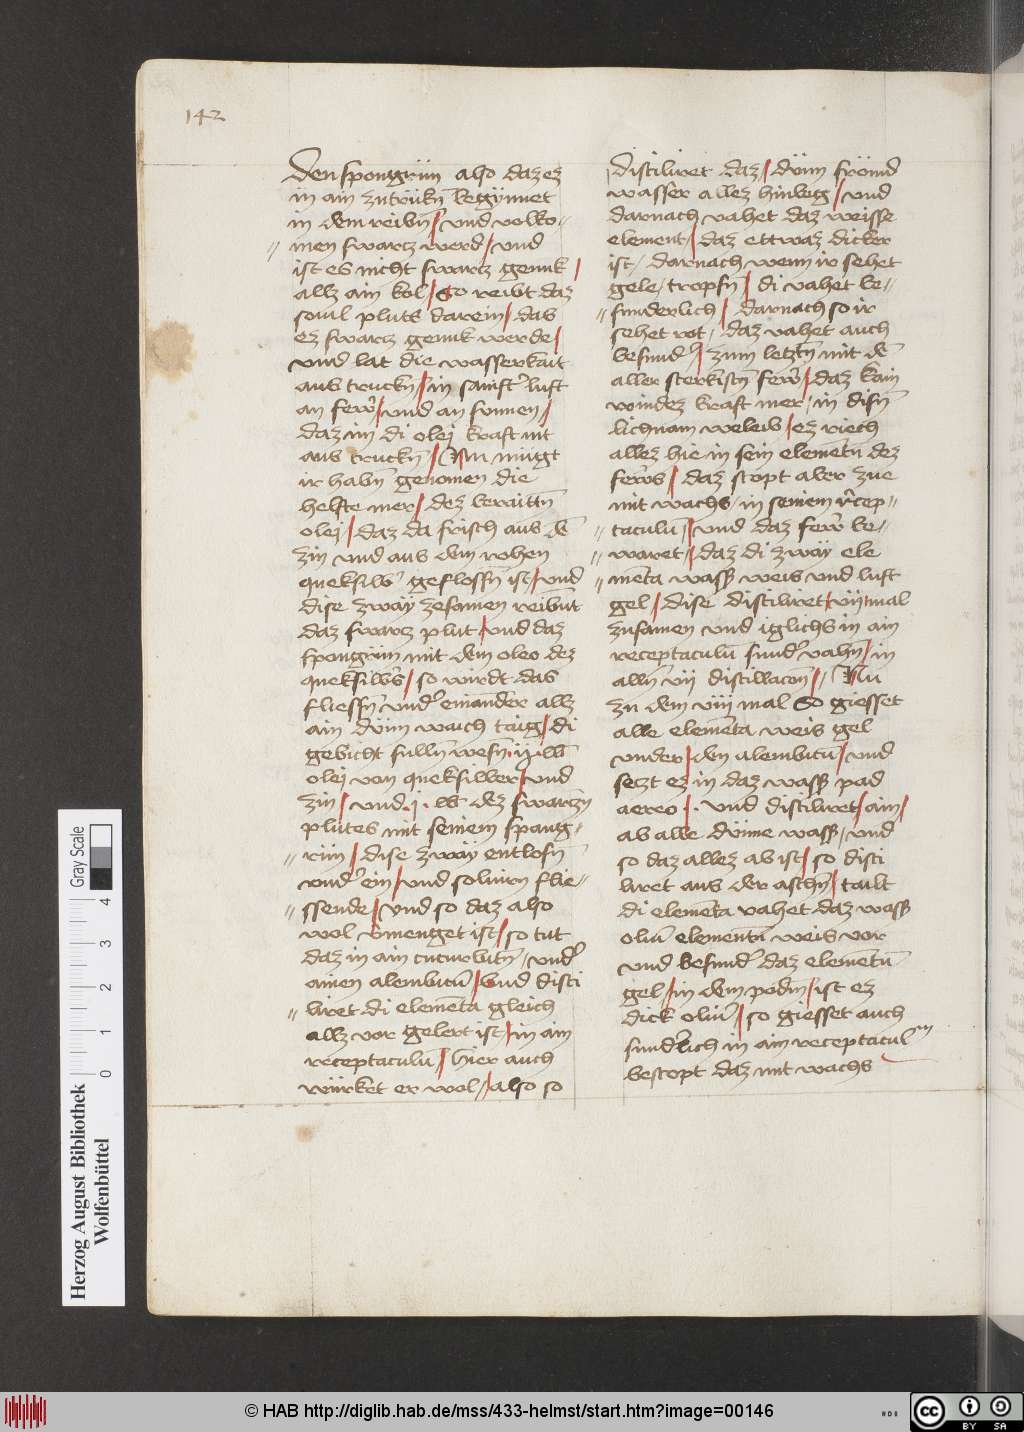 142
Den spongrün also daz ez
in ain zutrükn̄ begynnet
in dem reibn̄ / und volko-
men swarcz werd / und
ist es nicht swarcz genuk /
allz ain kol / So reibt daz
soul pluts darein / das
ez swarcz genuk werde /
und lat die wasserkait
aus truckn̄ / in sanft luft
an fewr / und an sunnen /
daz im di olej kraft nit
aus truckn̄ / Nu mügt
ir habn̄ genomen die
helfte mer / dez beraittn̄
olej / daz da frisch aus dē
zin und aus dem rohen
queksilb geflossn̄ ist / und
dise zway zesamen reibnt
daz swarcz plut / und daz
spongrün mit dem oleo dez
queksilbs / so wirdt das
fliessn̄ und einander allz
ain dünn waich taig / di
gebicht sulln̄ wesn̄ ij lb
olej von queksilber / und
zin / und j lb dez swarczn̄
plutes mit seinem spang-
rün / dise zway entlosn̄
und ein / und soluirn flie-
ssende / und so daz also
wol vmenget ist / so tut
daz in ain cucurbitn̄ / und
ainen alembicū / und disti
liret di elemēta gleich
allz vor gelert ist / in ain
receptaculū / hier auch
würket er wol / also so
distiliret daz / dünn frömd
wasser allez hinweg / und
darnach vahet daz weisse
element / daz ettwaz dicker
ist / darnach wenn ir sehet
gele / tropfn̄ / di vahet be-
sunderlich / darnach so ir
sehet rot / daz vahet auch
besund / zum letztn̄ mit dē
aller sterkistn̄ fewr / daz kain
windez kraft mer / in disn̄
lichnam weleib / ez riech
allez hie in sein elemētn̄ dez
fewrs / daz stopt aber zue
mit wachs / in seinem recep-
taculū / und daz fewr be-
waret / daz di zway ele
mēta wass weis und luft
gel / dise distiliret vij mal
zusamen und iglichs in ain
receptaculū sund vahn̄ / in
alln̄ vij distillacōn̄ / Nu
zu dem viij mal So giesset
alle elemēta weis gel
under / den alembicū / und
setzt ez in daz wass pad
aereo / und distiliret / ain /
ab alle dünne wass / und
so daz allez ab ist / so disti
liret aus der aschn̄ / tailt
di elemēta vahet daz wass
oliū elementū weis vor
und besund daz elemētū
gel / in dem podm̄ / ist ez
dick oliū / so giesset auch
sunderlich in ain receptaculm
bestopt daz mit wachs
Herzog August Bibliothek
Wolfenbüttel
Gray Scale
0 1 2 3 4
© HAB http://diglib.hab.de/mss/433-helmst/start.htm?image=00146
cc BY SA